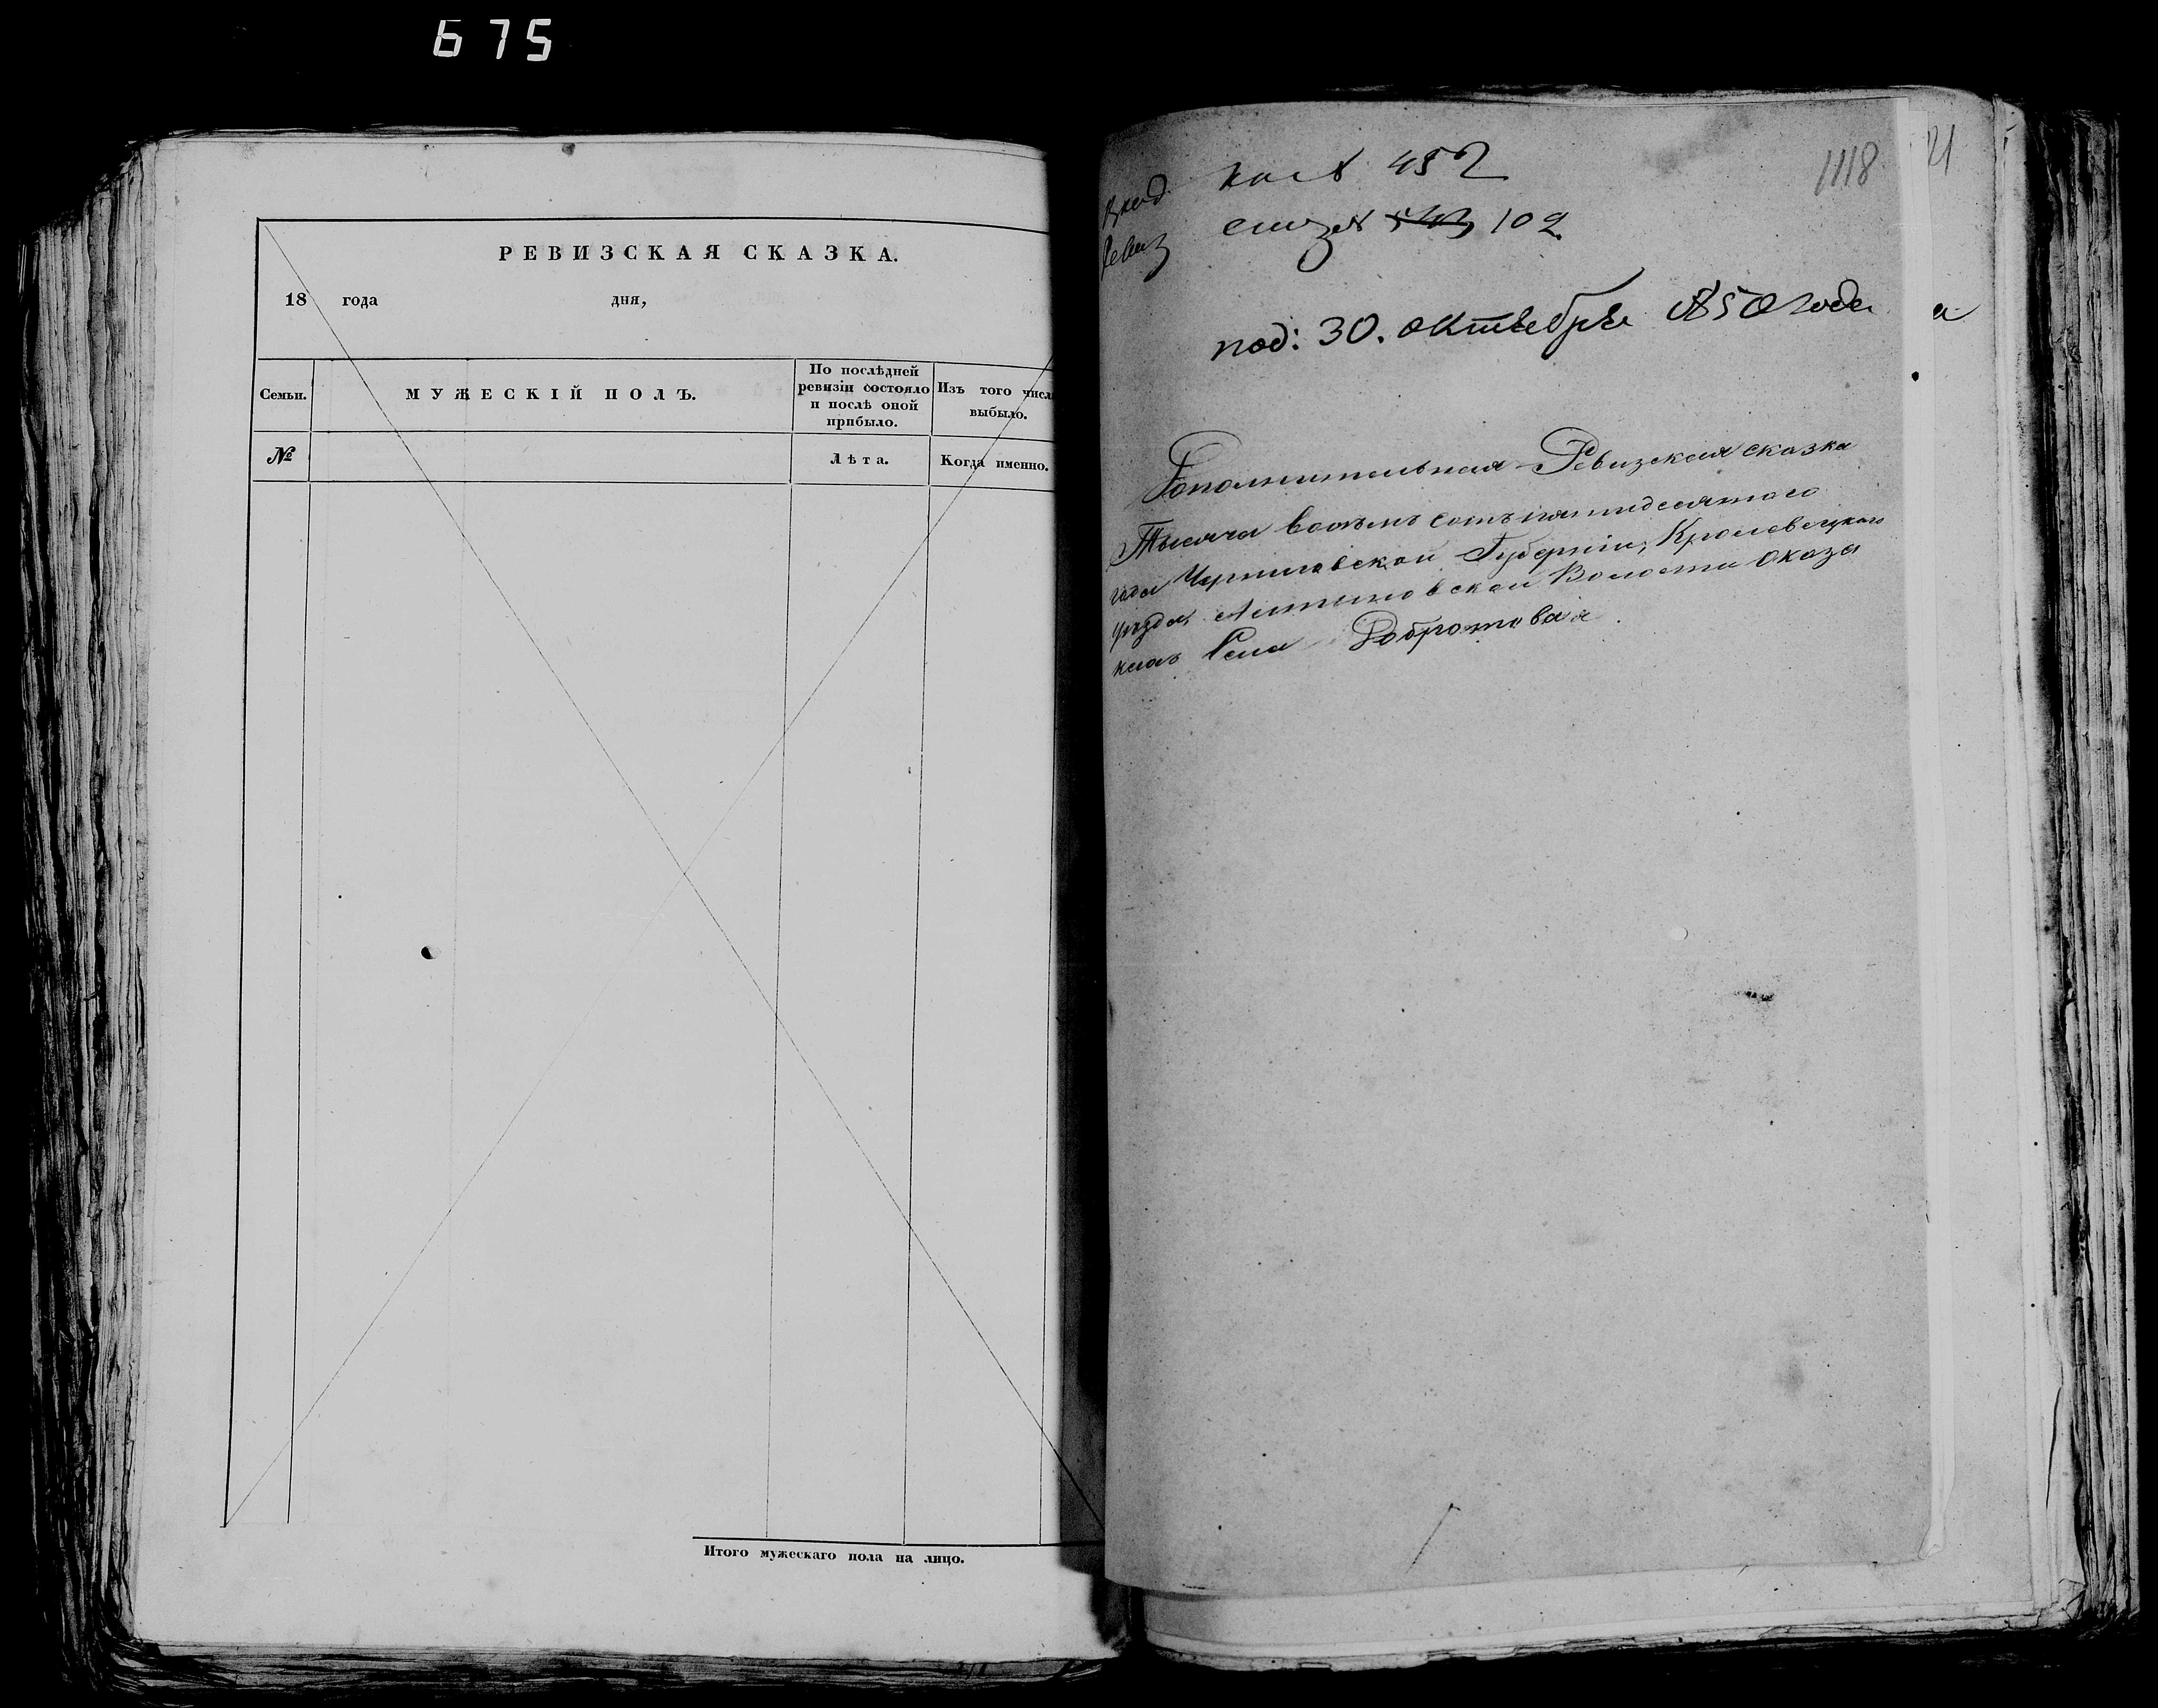 675
РЕВИЗСКАЯ СКАЗКА.
18 года дня,
Семьи.
МУЖЕСКІЙ ПОЛЪ.
По послѣдней
ревизіи состояло
и послѣ оной
прибыло.
Изъ того числа
выбыло.
№
Лѣта.
Когда именно.
Итого мужескаго пола на лицо.
1118
21
452
102
под: 30. октября 1850 года
а
Дополнительная Ревизская сказка
Тысяча восемь сотъ пятидесятого
года Черниговской Губерніи, Кролевецкаго
уѣзда, Алтыновской Волости О Каза
кахъ Села Добротова